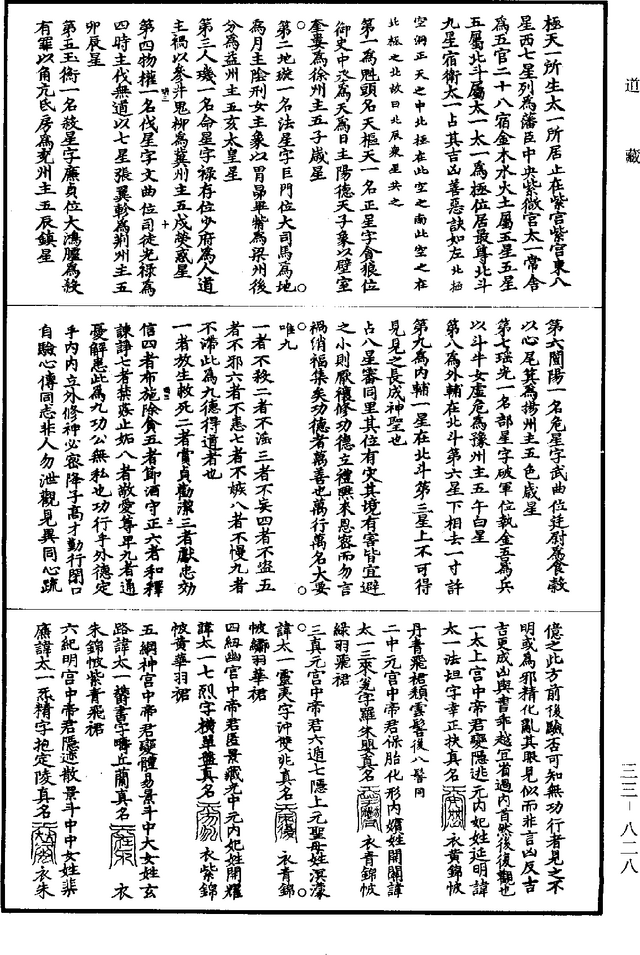 道藏
極天一所生太一所居止在紫宮紫宮東八
星西七星列為藩臣中央紫微宮太一常舍
為五宮二十八宿金木水火土屬五星五星
五屬北斗屬太一太一為極位居最尊北斗
九星宿衛太一占其吉凶善惡訣如左北極
空洞正天之中北極在此空之南此空之在
北極之北故曰北辰衆星共之
第一為魁頭名天樞天一名正星字貪狼位
御史中丞為天為日主陽德天子象以壁室
奎婁為徐州主五子歲星
第二地璇一名法星字巨門位大司馬為地
為月主陰刑女主象以胃昴畢觜為梁州後
分為益州主五亥太皇星
第三人璣一名命星字禄存位少府為人道
主禍以參井鬼柳為冀州主五戌熒惑星
第四物權一名伐星字文曲位司徒光禄為
四時主伐無道以七星張翼軫為荆州主五
卯辰星
第五玉衡一名殺星字廉貞位大鴻臚為殺
有罪以角亢氐房為兖州主五辰鎮星
第六闓陽一名危星字武曲位廷尉為食穀
以心尾箕為揚州主五色歲星
第七瑶光一名部星字破軍位執金吾為兵
以斗牛女虛危為豫州主五午白星
第八為外輔在北斗第六星下相去一寸許
第九為内輔一星在北斗第三星上不可得
見見之長成神聖也
占八星審同里其位有灾其境有害皆宜避
之小則厭穰修功德立禮熙来恩容而勿言
禍俏福集矣功德者萬善也萬行萬名大要
唯九
一者不殺二者不滛三者不妄四者不盗五
者不邪六者不恚七者不嫉八者不慢九者
不滯此為九德得道者也
一者放生救死二者賞貞勸潔三者獻忠効
信四者布施除貪五者節酒守正六者和釋
諫諍七者禁惡止妬八者敬愛尊卑九者通
憂解患此為九功公無私也功行乎外德定
乎内内立外修神必容降子高才勤行閉口
自驗心傳同志非人勿泄觀見異同心䟽
億之此方前後驗否可知無功行者見之不
明或為邪精化亂其眼見似而非言凶反吉
吉更成凶與書乖越宜省過内首然後復觀也
一太上宮中帝君變隱逃元内妃姓延明諱
太一法坦字幸正扶真名 衣黄錦帔
丹青飛裙頹雲髻後八髻同
二中元宮中帝君保胎化形内嬪姓開闌諱
太一三來冕字羅朱嬰真名 衣青錦帔
緑羽飛裙
三真元宮中帝君六遁七隱上元聖母姓溟濛
諱太一靈夷字沖雙兆真名 衣青錦
帔繡羽華裙
四紐幽宮中帝君匿景藏光中元内妃姓開耀
諱太一七烈字横單盤真名 衣紫錦
帔黄華羽裙
五綱神宮中帝君變體易景斗中大女姓玄
路諱太一鬱書字疇丘蘭真名 衣
朱錦帔紫青飛裙
六紀明宮中帝君隱迹散景斗中中女姓棐
廉諱太一死精字抱定陵真名 衣朱
三三—八二八